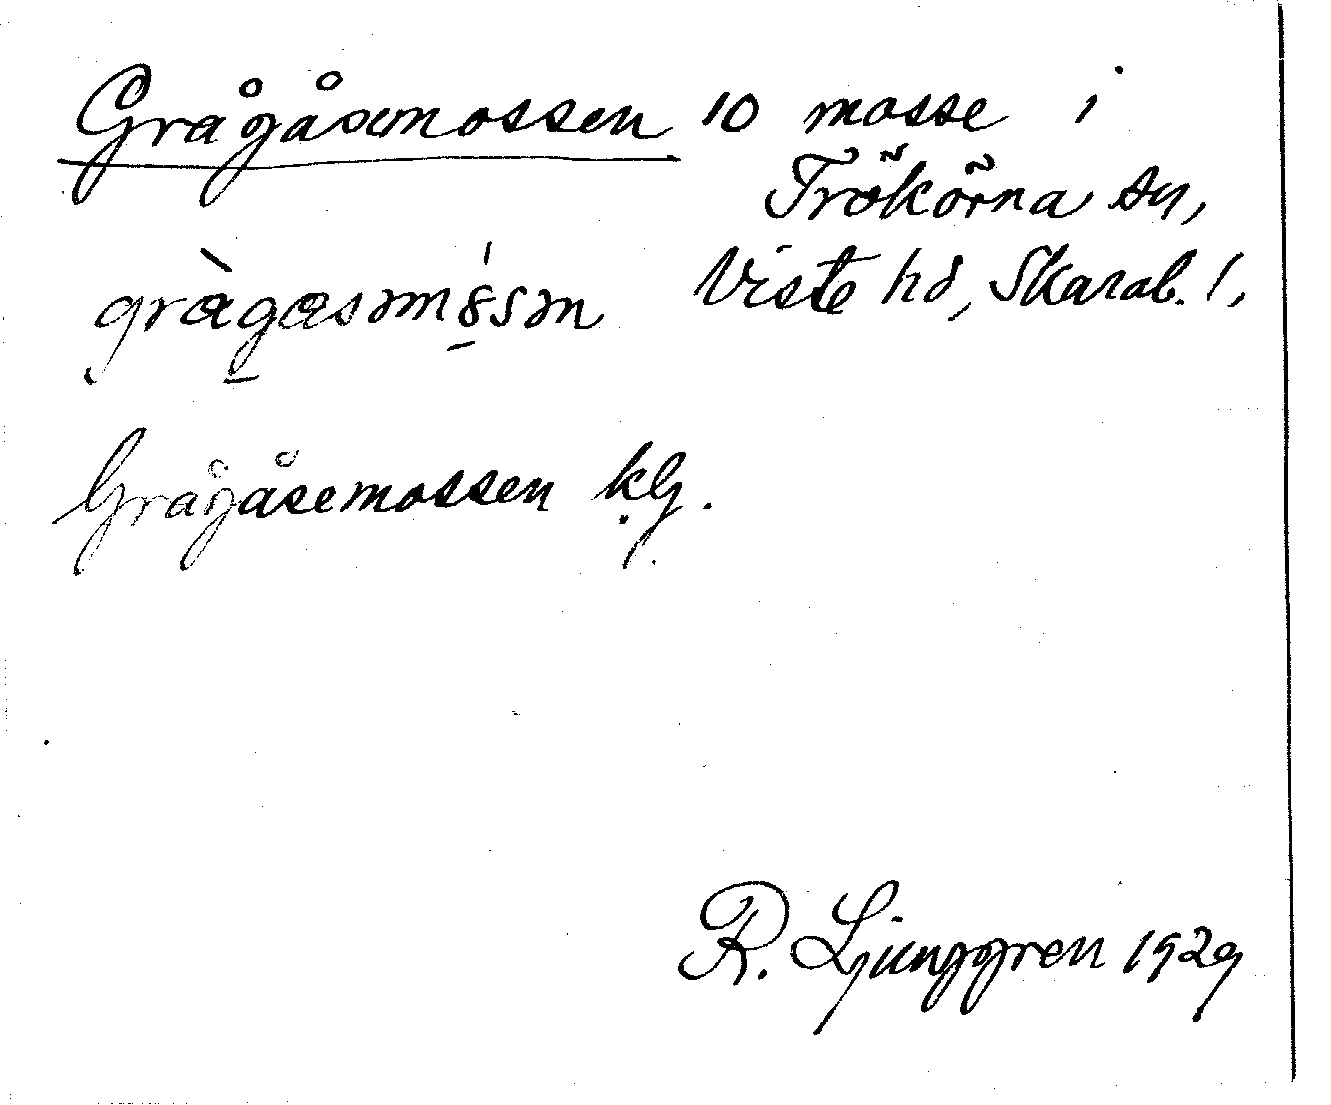 Grågåsemossen 10 mosse i
Trökörna sn,
Viste hd, Skarab. l,
Grågåsemossen kg.
R. Ljunggren 1929